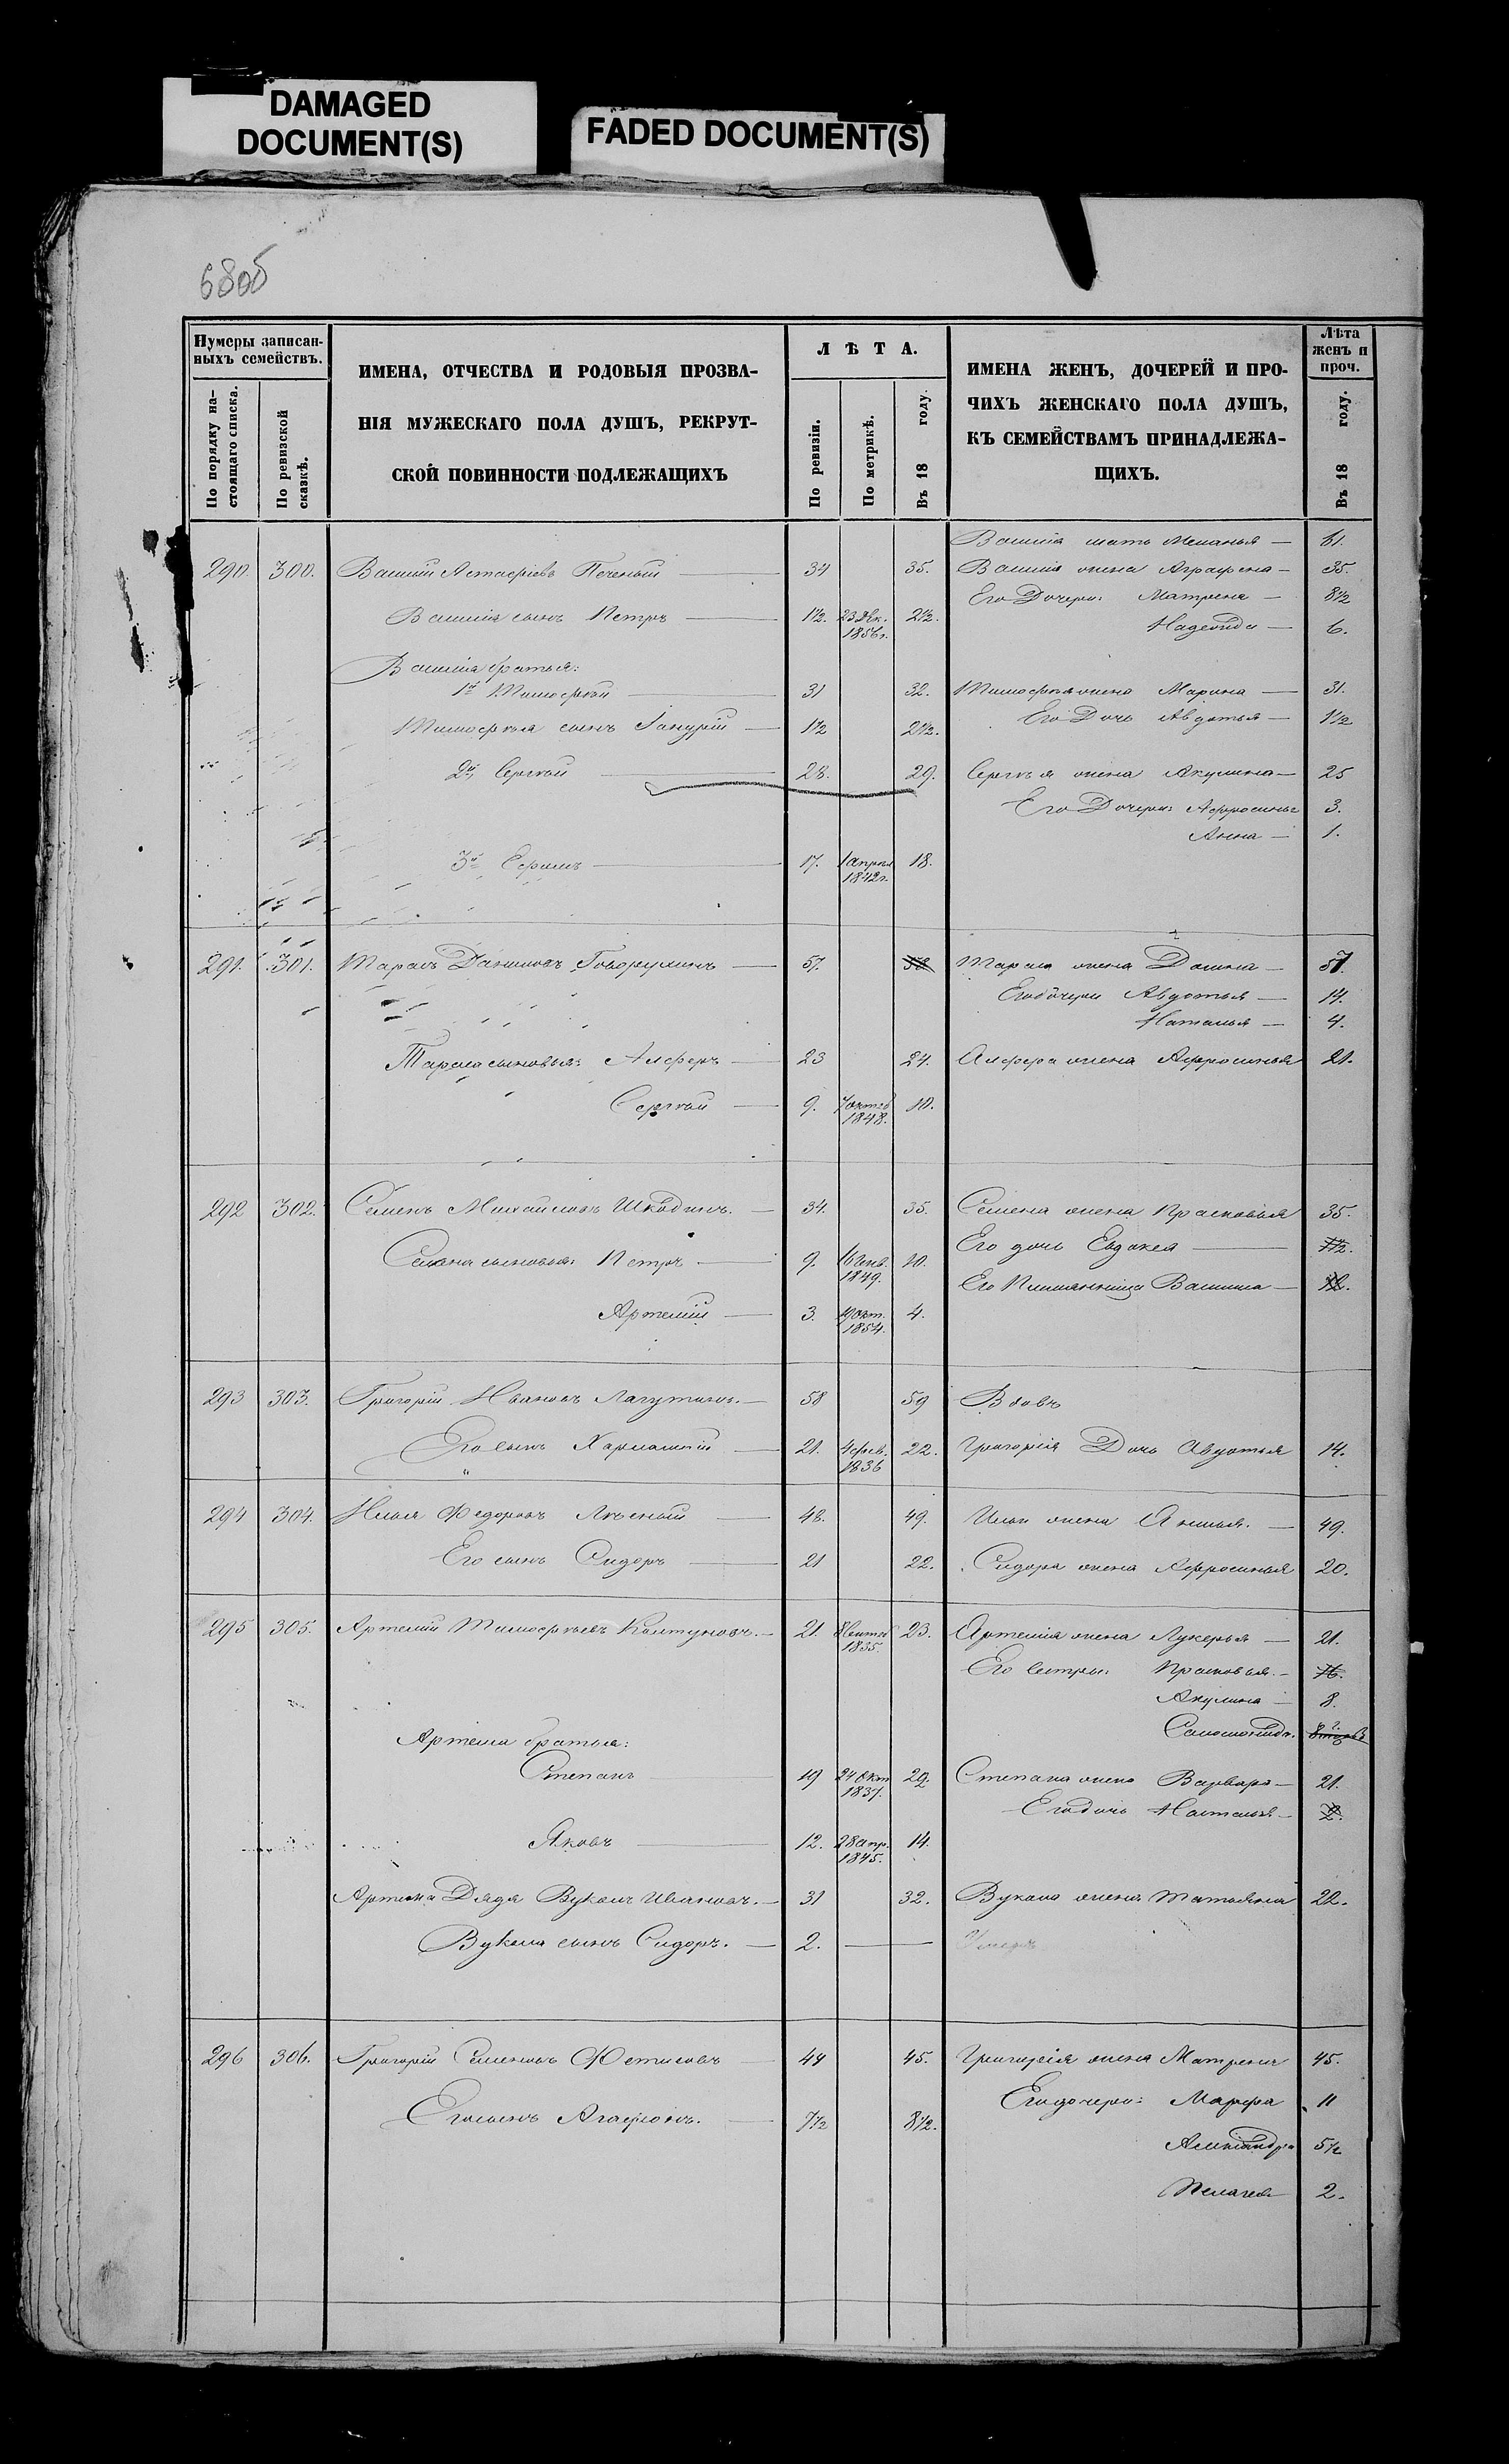 DAMAGED
DOCUMENT(S)
FADED DOCUMENT(S)
680б
Нумеры записан-
ныхъ семействъ.
По порядку на-
стоящаго списка.
По ревизской
сказкѣ.
ИМЕНА, ОТЧЕСТВА И РОДОВЫЯ ПРОЗВА-
НІЯ МУЖЕСКАГО ПОЛА ДУШЪ, РЕКРУТ-
СКОЙ ПОВИННОСТИ ПОДЛЕЖАЩИХЪ
ЛѢТА.
По ревизіи.
По метрикѣ.
Въ 18 году.
ИМЕНА ЖЕНЪ, ДОЧЕРЕЙ И ПРО-
ЧИХЪ ЖЕНСКАГО ПОЛА ДУШЪ,
КЪ СЕМЕЙСТВАМЪ ПРИНАДЛЕЖА-
ЩИХЪ.
Лѣта
женъ и
проч.
Въ 18 году.
Василія мать Меланья — 61.
290. 300. Василій Астафіевъ Печеный — 34 35. Василія жена Аграфена — 35.
Его Дочери: Матрена — 8½
Василія сынъ Петръ — 1½. 23 Дек. 1856 г. 2½. Надежда — 6.
Василія братья:
1й Тимофей — 31 32. Тимофея жена Марина — 31.
Тимофея сынъ — 1½ 2½. Его Дочь Авдотья — 1½
2й Сергѣй — 28. 29. Сергѣя жена Акулина — 25
Его Дочери: Афросинья 3.
Анна — 1.
3й Ефимъ — 17. 1 апрѣля 1842 г. 18.
291. 301. Тарасъ Даниловъ — 57. 58 Тараса жена Домна — 57.
Его дочери Авдотья — 14.
Наталья — 4.
Тараса сыновья: Алферъ — 23 24. Алфера жена Афросинья 21.
Сергѣй — 9. 7 октяб 1848. 10.
292 302. Семенъ Михайловъ Шкодинъ. — 34. 35. Семена жена Прасковья 35.
Его дочь Евдокея — 1½.
Семена сыновья: Петръ — 9. 16 Генв. 1849. 10.
Его Племянница Василиса — 12.
Артемій — 3. 19 Окт. 1854. 4.
293 303. Григорій Ивановъ Лагутинъ. — 58 59 Вдовъ
Его сынъ Харлампій — 21. 4 фев. 1836 22. Григорія Дочь Авдотья 14.
294 304. Илья Федоровъ Лѣсный — 48. 49. Ильи жена Анисья. — 49.
Его сынъ Сидоръ — 21 22. Сидора жена Афросинья 20.
295 305. Артемій Тимофѣевъ Колтуновъ. — 21. 8 Сентяб 1835. 23. Артемія жена Лукерья — 21.
Его сестры: Прасковья. — 16.
Акулина — 8.
Соломонида.
Артема братья:
Степанъ — 19 24 Окт 1837. 20. Степана жена Варвара — 21.
Его дочь Наталья — 2.
Яковъ — 12. 28 апр. 1845. 14.
Артема Дядя Вуколъ Ивановъ. — 31 32. Вукола жена Татьяна 22.
Вукола сынъ Сидоръ. — 2. — Умеръ
296 306. Григорій Семеновъ Фетисовъ 44 45. Григорія жена Матрена 45.
Его дочери: Марфа 11
Его сынъ Агафонъ. — 7½ 8½.
Александра 5½
Пелагея 2.